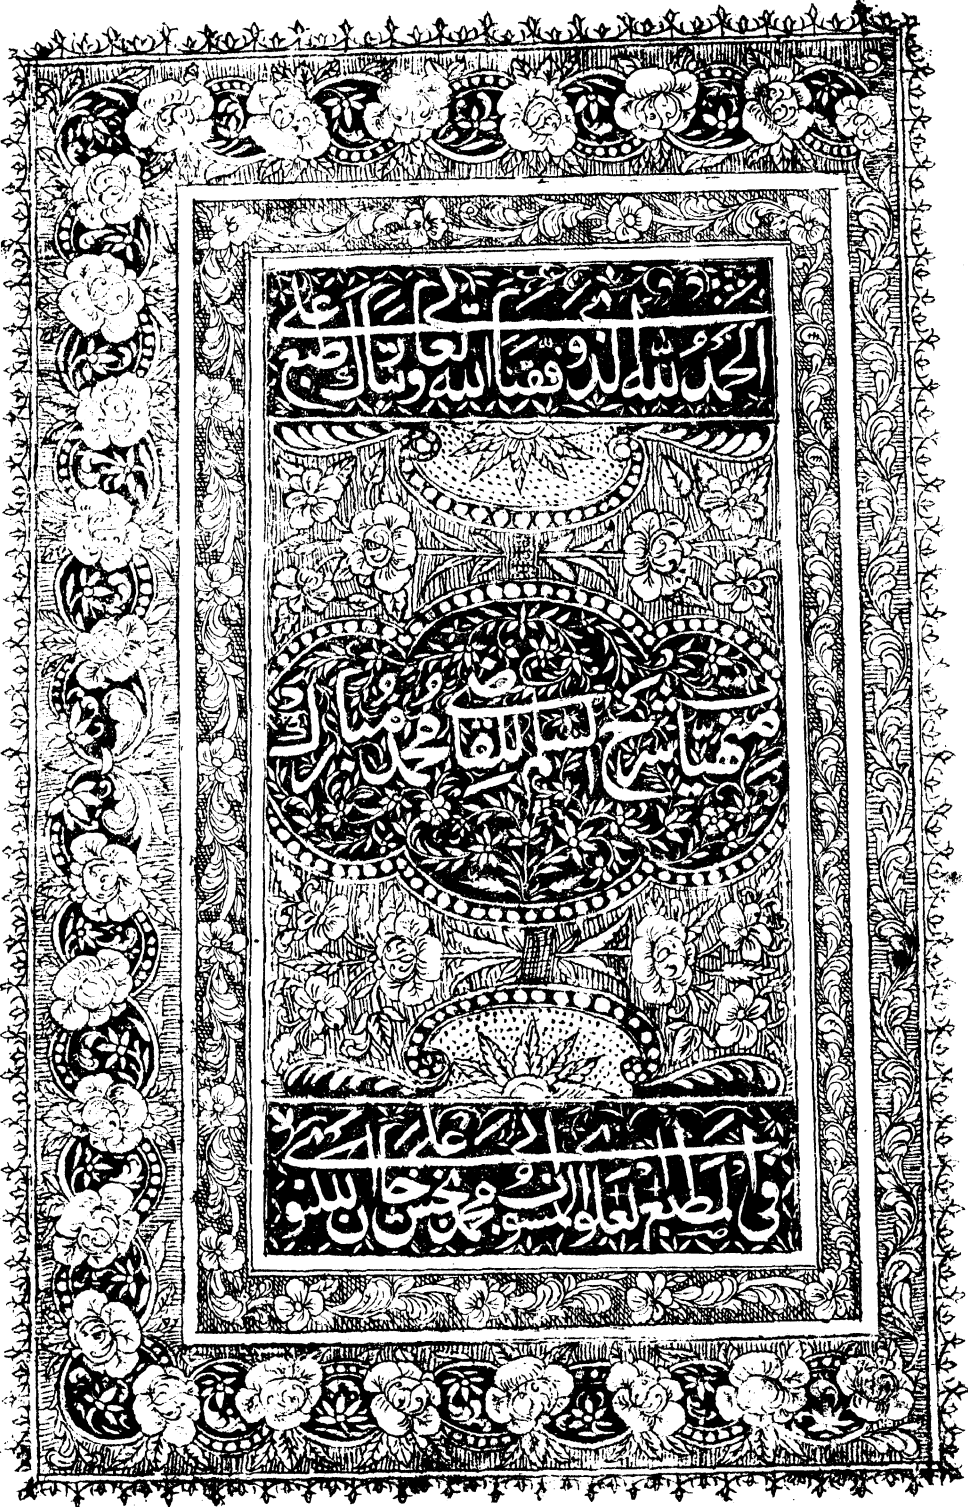 الحمد لله الذي وفقنا الله تعالى على طبع
منهيات شرح السلم للقاضي محمد مبارك
في المطبع العلوي المنسوب الى محمد علي بخش خان لكنوي